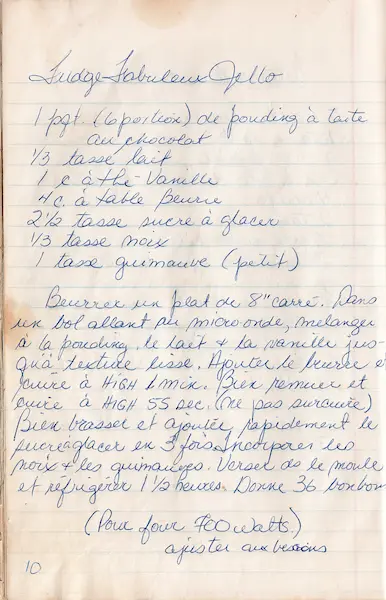 Fudge Fabuleux Jello
1 pqt. (6 portion) de pouding à tarte
au chocolat
1/3 tasse lait
1 c à thé Vanille
4 c. à table Beurre
2 1/2 tasse sucre à glacer
1/3 tasse noix
1 tasse guimauve (petit)
Beurrer un plat de 8" carré. Dans
un bol allant au micro onde, mélanger
à la pouding le lait + la vanille jus-
qu'à texture lisse. Ajouter le beurre et
cuire à HIGH 1 min. Bien remuer et
cuire à HIGH 55 sec. (ne pas surcuire)
Bien brasser et ajouter rapidement le
sucre à glacer en 3 fois. Incorporer les
noix + les guimauves. Verser ds le moule
et réfrigérer 1 1/2 heures. Donne 36 bonbons
(Pour four 700 watts.)
ajuster aux besoins
10